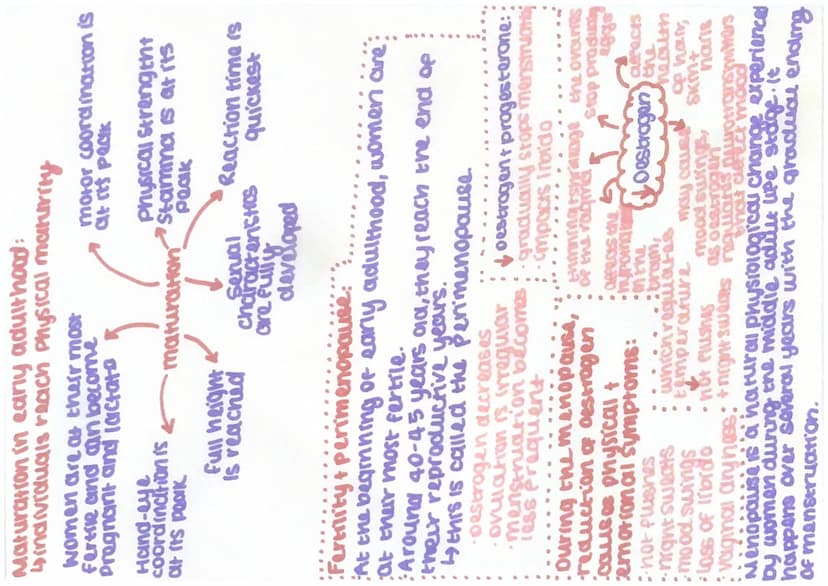 Maturation in early adulthood:
↳ individuals reach physical maturity
Women are at their most
fertile and can become
pregnant and lactate
motor coordination is
at its peak
Physical strength
stamina is at its
peak
Reaction time is
quickest
maturation
Sexual
characteristics
are fully
developed
Full height
is reached
Hand-eye
coordination is
at its peak
Fertility + perimenopause:
At the beginning of early adulthood, women are
at their most fertile.
Around 40-45 years old, they reach the end of
their reproductive years.
↳ this is called the perimenopause.
·oestrogen decreases
·ovulation is irregular
·menstruation becomes
less frequent
↓ oestrogen + progesterone:
gradually stops menstruation
impacts libido
During the menopause,
reduction of oestrogen
causes physical +
emotional symptoms:
·hot flushes
·night sweats
·mood swings
·loss of libido
·vaginal dryness
of the vagina
the ovaries
stop producing
eggs
↓ Oestrogen
affects
the
health
of hair,
skin +
nails
affects the
in the
brain,
which regulates
temperature
↓
hot flushes
+ night sweats
may cause
mood swings,
as oestrogen
Menopause is a natural physiological change experienced
by women during the middle adult life stage. It
happens over several years with the gradual ending
of menstruation.